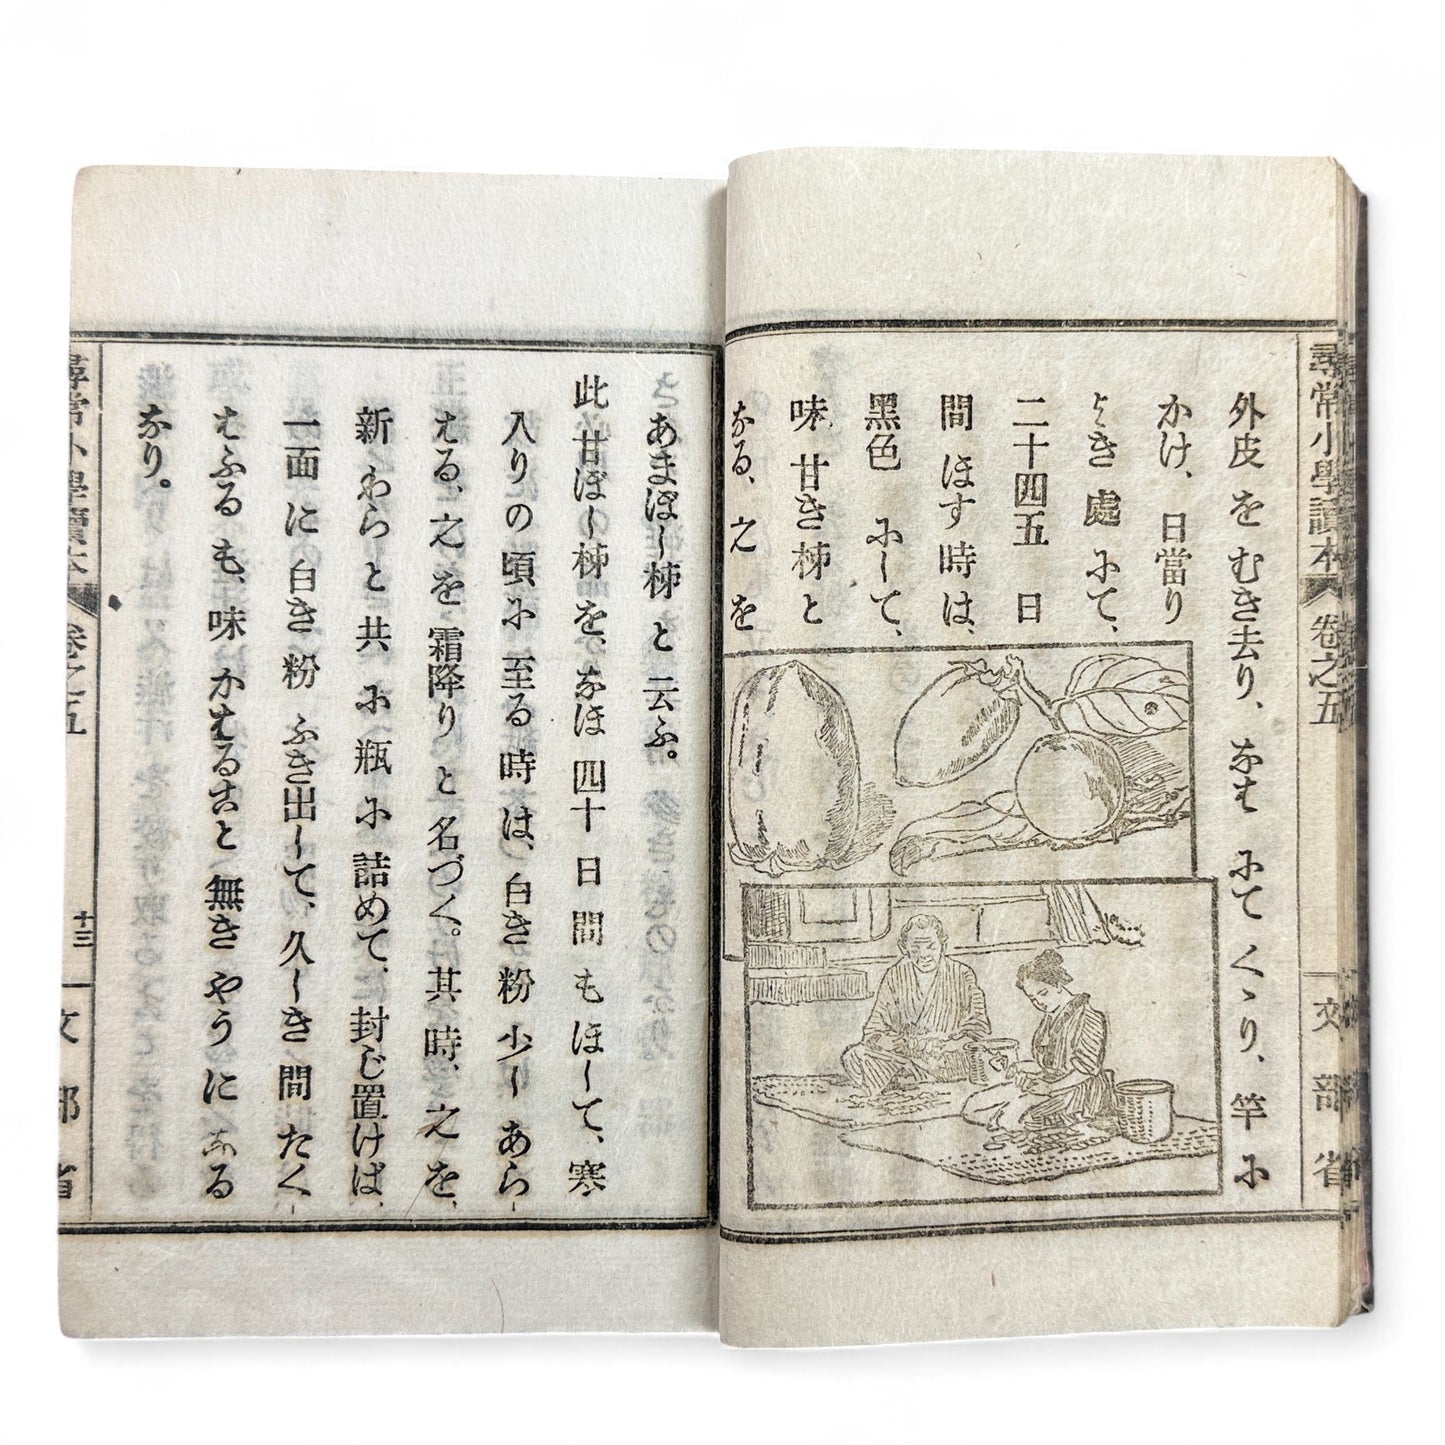 尋常小學讀本 卷之五 文部省
外皮をむき去り、なはにてくゝり、竿に
かけ、日當り
よき處にて、
二十四五日
間ほす時は、
黑色にして、
味甘き柹と
なる、之を
あまぼし柹と云ふ。
此甘ぼし柹を、なほ四十日間もほして、寒
入りの頃に至る時は、白き粉少しあら
はる、之を霜降りと名づく。其時、之を、
新わらと共に瓶に詰めて、封じ置けば、
一面に白き粉ふき出して、久しき間たく
はふるも、味かはること無きやうになる
なり。
尋常小學讀本 卷之五 十三 文部省